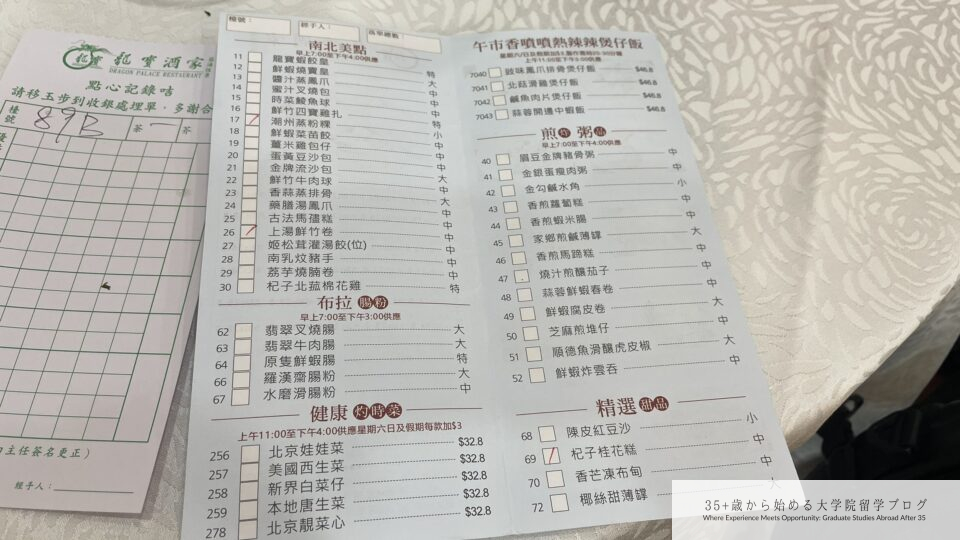 龍寶酒家
DRAGON PALACE RESTAURANT
點心記錄咭
請移玉步到收銀處埋單，多謝合
89B
茶 茶
主任簽名更正）
經手人：
檯號：
經手人：
落單總數
南北美點
早上7:00至下午4:00供應
11 龍寶蝦餃皇 特
12 鮮蝦燒賣皇 大
13 醬汁蒸鳳爪 中
14 蜜汁叉燒包 中
15 時菜鯪魚球 中
16 鮮竹四寶雞扎
17 潮州蒸粉粿
18 鮮蝦菜苗餃
19 薑米雞包仔 中
20 蛋黃豆沙包 中
21 金牌流沙包 中
22 鮮竹牛肉球
23 香蒜蒸排骨
24 藥膳湯鳳爪
25 古法馬孻糕 中
26 上湯鮮竹卷 中
27 姬松茸灌湯餃(位) 中
28 南乳炆豬手 中
29 荔芋燒腩卷 中
30 杞子北菰棉花雞 特
布拉腸粉
早上7:00至下午3:00供應
62 翡翠叉燒腸 大
63 翡翠牛肉腸 大
64 原隻鮮蝦腸 特
66 羅漢齋腸粉 大
67 水磨滑腸粉 中
健康灼時菜
上午11:00至下午4:00供應星期六日及假期每款加$3
256 北京娃娃菜 $32.8
257 美國西生菜 $32.8
258 新界白菜仔 $32.8
259 本地唐生菜 $32.8
278 北京靚菜心 $32.8
午市香噴噴熱辣辣煲仔飯
上午11:00至下午3:00供應
7040 豉味鳳爪排骨煲仔飯 $46.8
7041 北菇滑雞煲仔飯 $46.8
7042 鹹魚肉片煲仔飯 $46.8
7043 蒜蓉開邊中蝦飯 $46.8
煎炸粥品
早上7:00至下午4:00供應
40 眉豆金牌豬骨粥 中
41 金銀蛋瘦肉粥 中
42 金勾鹹水角 小
43 香煎蘿蔔糕 中
44 香煎蝦米腸 中
45 家鄉煎鹹薄罉 大
46 香煎馬蹄糕 中
47 燒汁煎釀茄子 中
48 蒜蓉鮮蝦春卷 中
49 鮮蝦腐皮卷 大
50 芝麻煎堆仔 中
51 順德魚滑釀虎皮椒 大
52 鮮蝦炸雲吞 中
精選甜品
68 陳皮紅豆沙 小
69 杞子桂花糕 中
70 香芒凍布甸 中
72 椰絲甜薄罉
35+歳から始める大学院留学ブログ
Where Experience Meets Opportunity: Graduate Studies Abroad After 35